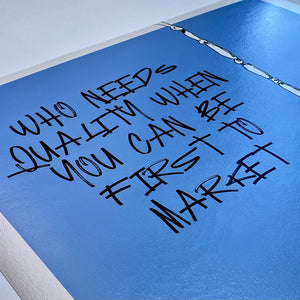 WHO NEEDS
QUALITY WHEN
YOU CAN BE
FIRST TO
MARKET